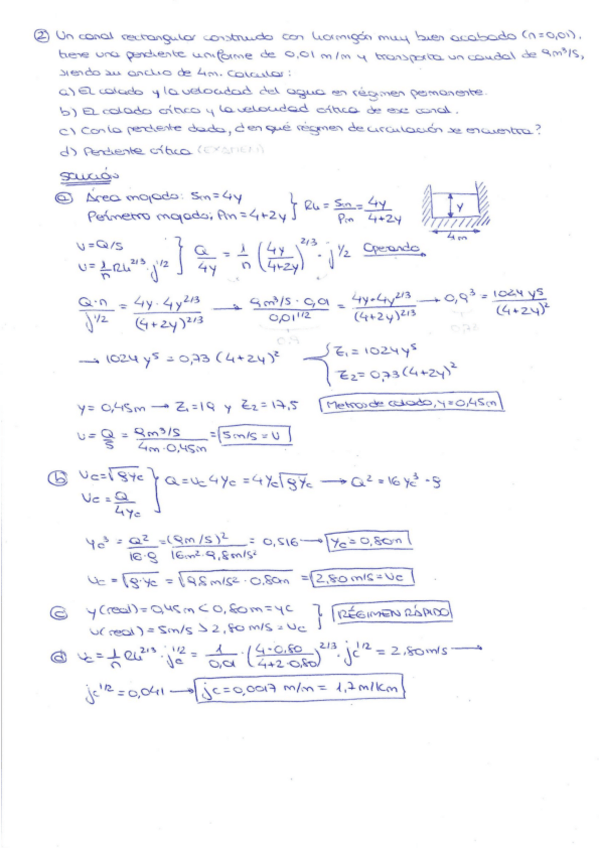 ② Un canal rectangular construido con hormigón muy bien acabado (n=0,01),
tiene una pendiente uniforme de 0,01 m/m y transporta un caudal de 9m³/s,
siendo su ancho de 4m. Calcular:
a) El calado y la velocidad del agua en régimen permanente.
b) El calado crítico y la velocidad crítica de ese canal.
c) Con la pendiente dada, ¿en qué régimen de circulación se encuentra?
d) Pendiente crítica (EXAMEN)
SOLUCIÓN
ⓐ Área mojada: Sm=4y
Perímetro mojado: Pm=4+2y } Rh = Sm/Pm = 4y/(4+2y)
y
4m
U=Q/S
U=1/n Rh^2/3 · j^1/2 } Q/4y = 1/n (4y/(4+2y))^2/3 · j^1/2 Operando,
Q·n/j^1/2 = 4y·4y^2/3/(4+2y)^2/3 → 9m³/s·0,01/0,01^1/2 = 4y·4y^2/3/(4+2y)^2/3 → 0,9³ = 1024y⁵/(4+2y)²
→ 1024y⁵=0,73(4+2y)² { Z₁=1024y⁵
Z₂=0,73(4+2y)²
y=0,45m → Z₁=19 y Z₂=17,5 Metros de calado, y=0,45m
U=Q/S = 9m³/s/4m·0,45m = 5m/s=U
ⓑ Uc=√g·yc
Uc=Q/4yc } Q=Uc4yc=4yc√g·yc → Q²=16yc³·g
yc³=Q²/16·g = (9m/s)²/16m²·9,8m/s² = 0,516 → yc=0,80m
Uc=√g·yc = √9,8m/s²·0,80m = 2,80m/s=Uc
ⓒ y(real)=0,45m<0,80m=yc
U(real)=5m/s>2,80m/s=Uc } RÉGIMEN RÁPIDO
ⓓ Uc=1/n Rh^2/3·jc^1/2 = 1/0,01·(4·0,80/(4+2·0,80))^2/3·jc^1/2=2,80m/s →
jc^1/2=0,041 → jc=0,0017 m/m = 1,7m/km